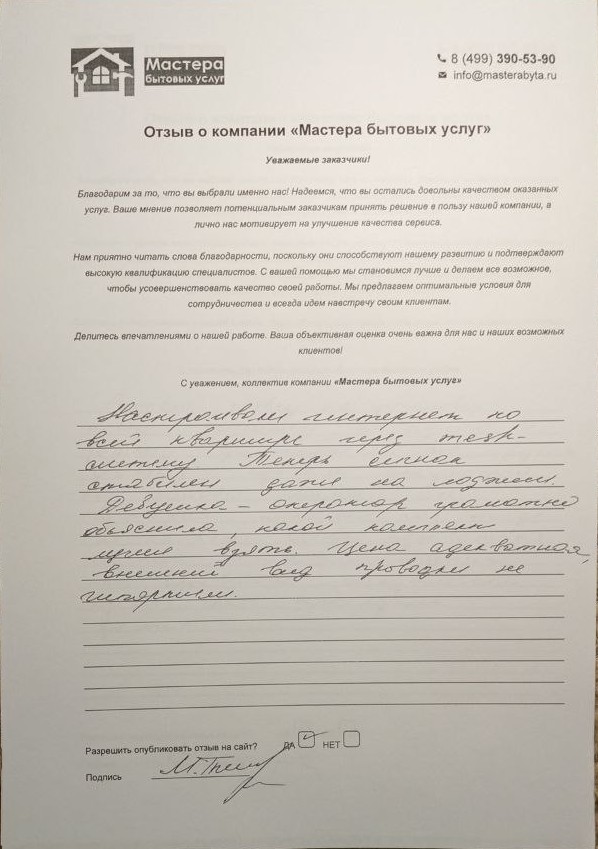 Мастера
бытовых услуг
8 (499) 390-53-90
info@masterabyta.ru
Отзыв о компании «Мастера бытовых услуг»
Уважаемые заказчики!
Благодарим за то, что вы выбрали именно нас! Надеемся, что вы остались довольны качеством оказанных
услуг. Ваше мнение позволяет потенциальным заказчикам принять решение в пользу нашей компании, а
лично нас мотивирует на улучшение качества сервиса.
Нам приятно читать слова благодарности, поскольку они способствуют нашему развитию и подтверждают
высокую квалификацию специалистов. С вашей помощью мы становимся лучше и делаем все возможное,
чтобы усовершенствовать качество своей работы. Мы предлагаем оптимальные условия для
сотрудничества и всегда идем навстречу своим клиентам.
Делитесь впечатлениями о нашей работе. Ваша объективная оценка очень важна для нас и наших возможных
клиентов!
С уважением, коллектив компании «Мастера бытовых услуг»
Настроивали интернет по
всей квартире через mesh-
систему. Теперь сигнал
стабилен даже на лоджии.
Девушка - оператор грамотно
объяснила, какой комплект
лучше взять. Цена адекватная,
внешний вид проводки не
испортили.
Разрешить опубликовать отзыв на сайт? ДА НЕТ
Подпись